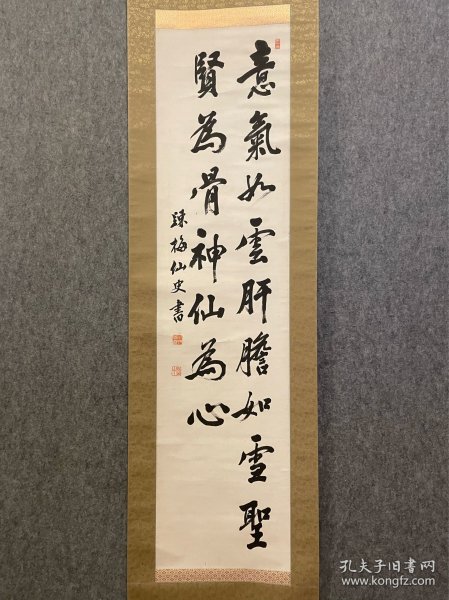 意氣如雲肝膽如雪聖
賢為骨神仙為心
疎梅仙史書
孔夫子旧书网
www.kongfz.com